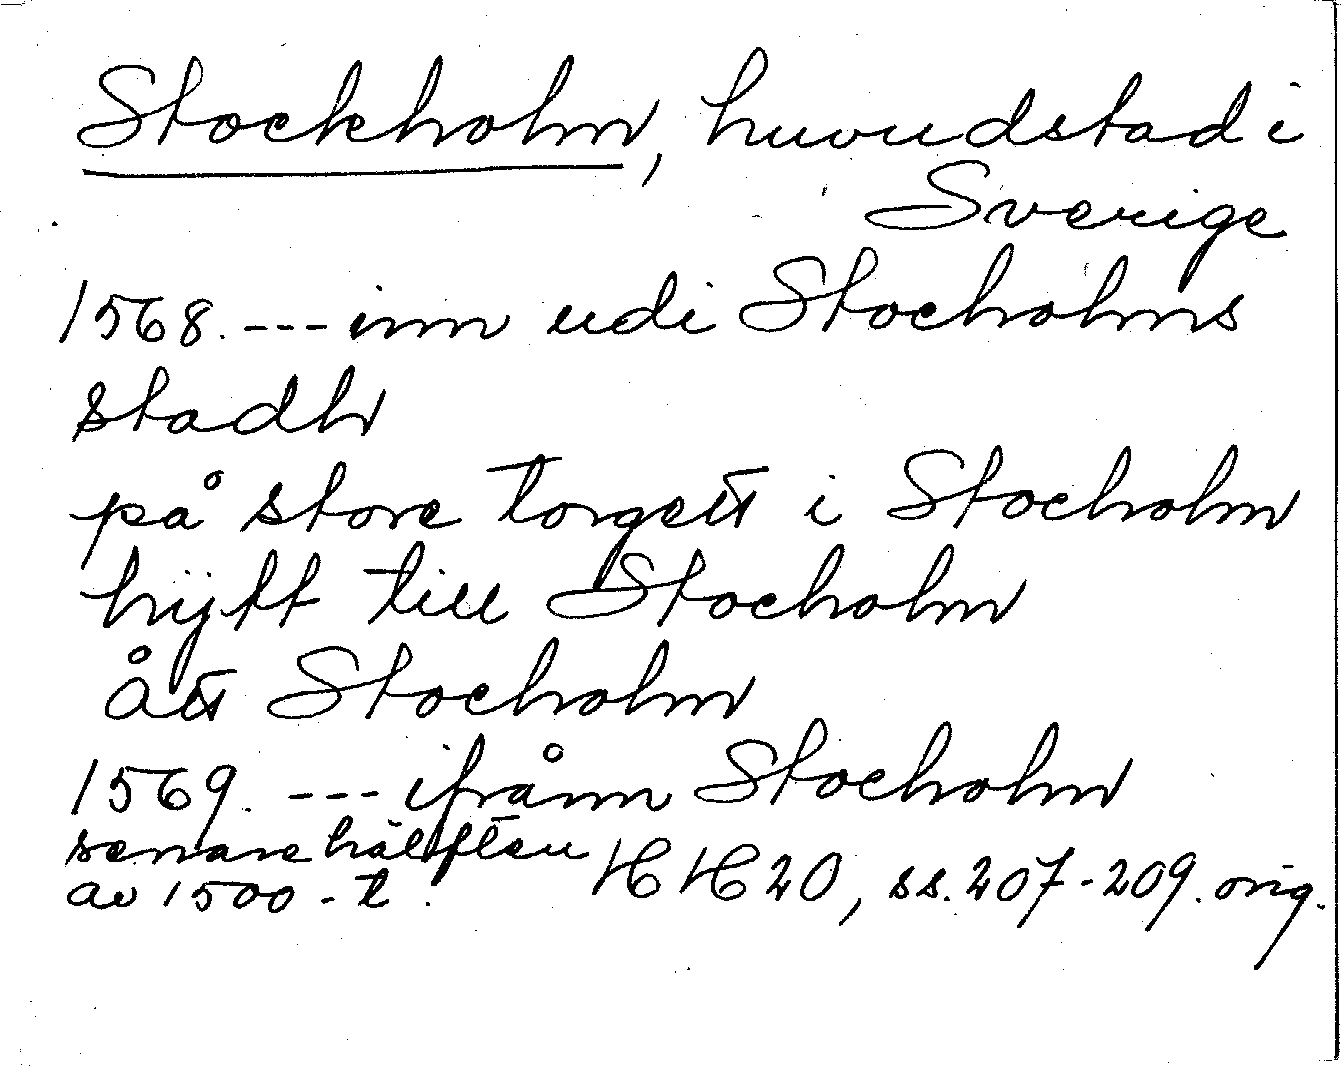 Stockholm, huvudstad i
Sverige
1568. --- inn udi Stocholms
stadh
på store torgett i Stocholm
hijtt till Stocholm
átt Stocholm
1569. --- ifrånn Stocholm
senare hälften
av 1500-t. HH 20, ss. 207-209. orig.